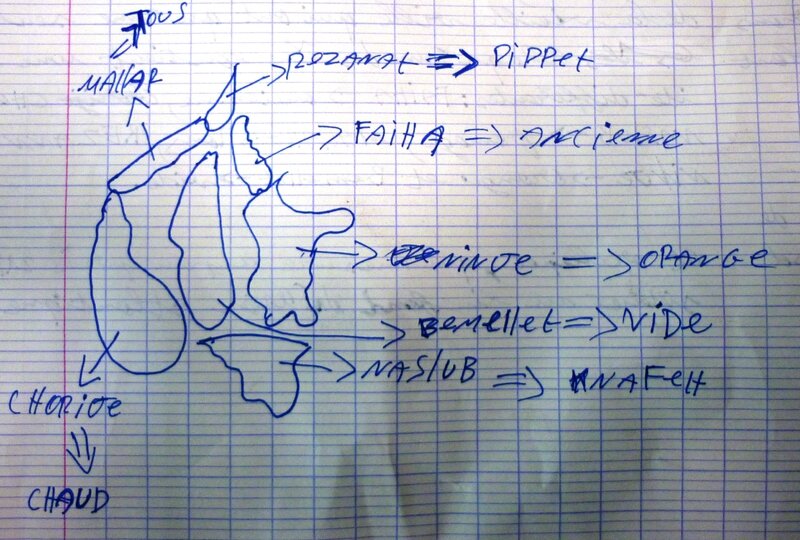 TOUS
MALLAR
ROZANAt => PiPPet
FAIHA => ANCienne
NiNOe => ORANGe
Bemellet => ViDe
NASLUB => KNAFeH
CHORiOe
CHAUD